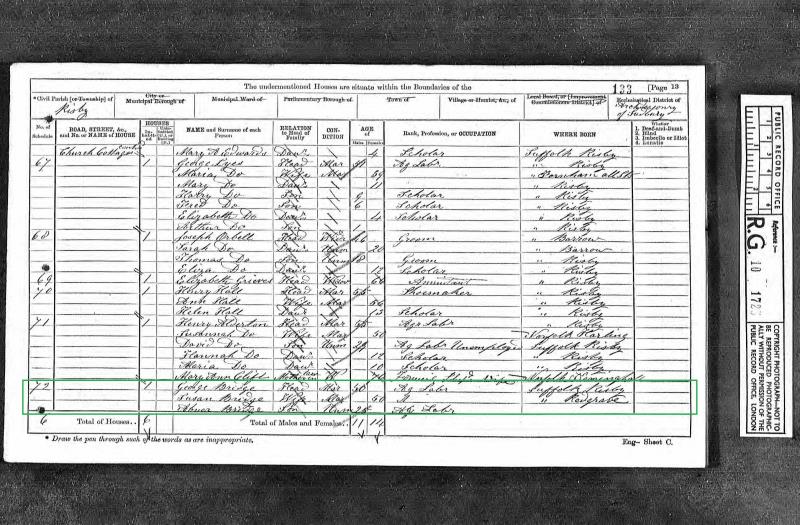 The undermentioned Houses are situate within the Boundaries of the
133 [Page 13
*Civil Parish [or Township] of
Risby
City or
Municipal Borough of
Municipal Ward of
Parliamentary Borough of
Town of
Village or Hamlet, &c., of
Local Board, or [Improvement
Commissioners District] of
Ecclesiastical District of
Archdeaconry
of Sudbury
No. of
Schedule
ROAD, STREET, &c.,
and No. or NAME of HOUSE
HOUSES
NAME and Surname of each
Person
RELATION
to Head of
Family
CON-
DITION
AGE
of
Males Females
Rank, Profession, or OCCUPATION
WHERE BORN
Whether
1. Deaf-and-Dumb
2. Blind
3. Imbecile or Idiot
4. Lunatic
Church Cottages Mary A Edwards Daur 4 Scholar Suffolk Risby
67 1 George Head Mar Ag Labr " Risby
Maria Do Wife Mar 39 "
Mary Do Daur 11 " Risby
Harry Do Son 9 Scholar " Risby
Fred Do Son 6 Scholar " Risby
Elizabeth Do Daur 4 Scholar " Risby
Arthur Do Son 1 " Risby
68 1 Joseph Orbell Head Groom " Barrow
Sarah Do Daur 20 " Barrow
Thomas Do Son 18 Groom " Risby
Eliza Do Daur 12 Scholar " Risby
69 1 Elizabeth Grieves Head Widow 66 Annuitant " Risby
70 1 Henry Hall Head Mar 55 Shoemaker " Risby
Ann Hall Wife Mar 56 " Risby
Helen Hall Daur 13 Scholar " Risby
71 1 Henry Alderton Head Mar Ag Labr Norfolk Harling
Susannah Do Wife Mar 50 Suffolk Risby
David Do Son Unm Ag Labr Unemployed " Risby
Hannah Do Daur 12 Scholar " Risby
Maria Do Daur 10 Scholar " Risby
Mary Ann Clift Norfolk
72 1 George Bridge Head Mar 50 Ag Labr Suffolk Risby
Susan Bridge Wife Mar 50 " Redgrave
Abner Bridge Son Unm 25 Ag Labr
6 Total of Houses.. 6 Total of Males and Females.. 11 14
* Draw the pen through such of the words as are inappropriate.
Eng— Sheet C.
PUBLIC RECORD OFFICE
Reference :—
R.G. 10
COPYRIGHT PHOTOGRAPH—NOT TO
BE REPRODUCED PHOTOGRAPHIC-
ALLY WITHOUT PERMISSION OF THE
PUBLIC RECORD OFFICE, LONDON